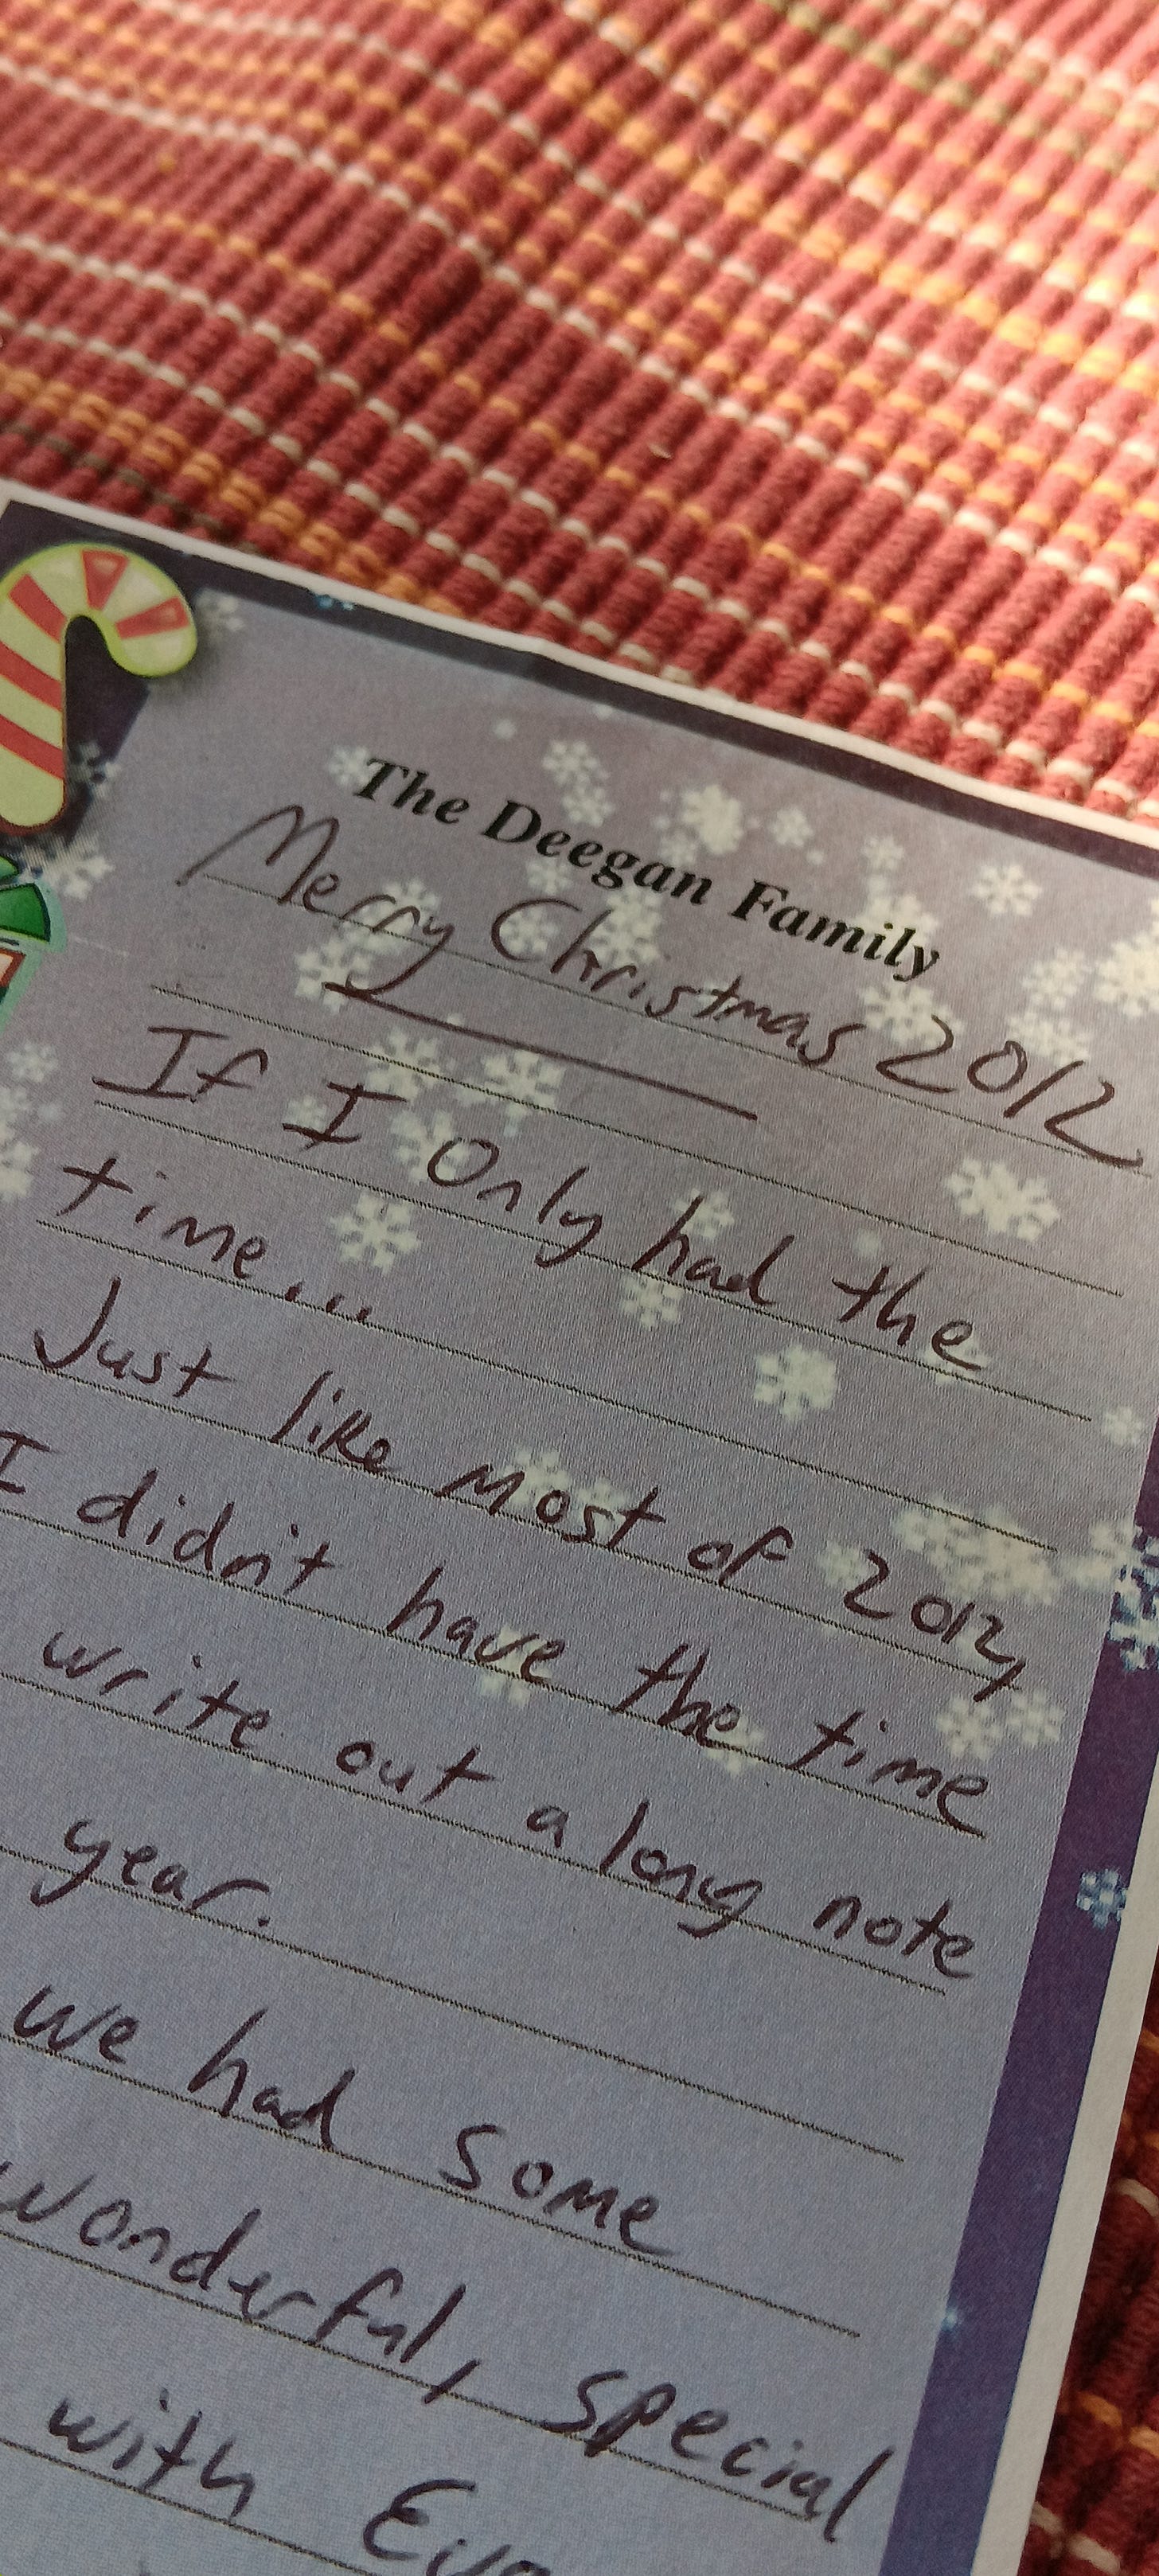 The Deegan Family
Merry Christmas 2012
If I Only had the
time...
Just like most of 2012,
I didn't have the time
write out a long note
year.
we had some
wonderful, special
with